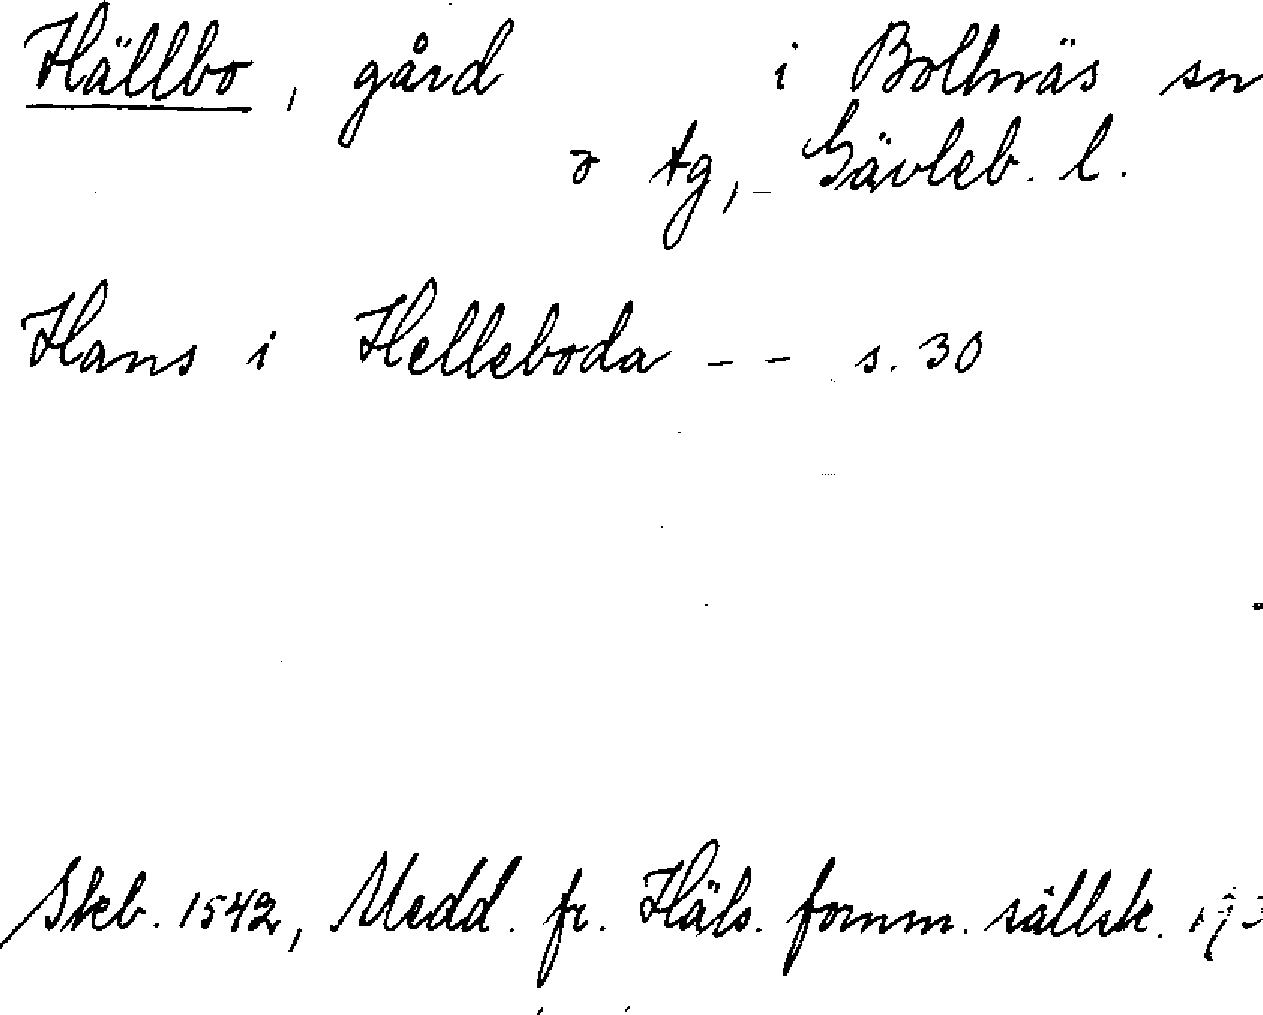 Hällbo, gård i Bollnäs sn
o tg, Gävleb. l.
Hans i Helleboda -- s. 30
Skeb. 1542, Medd. fr. Häls. fornm. sällsk. 193